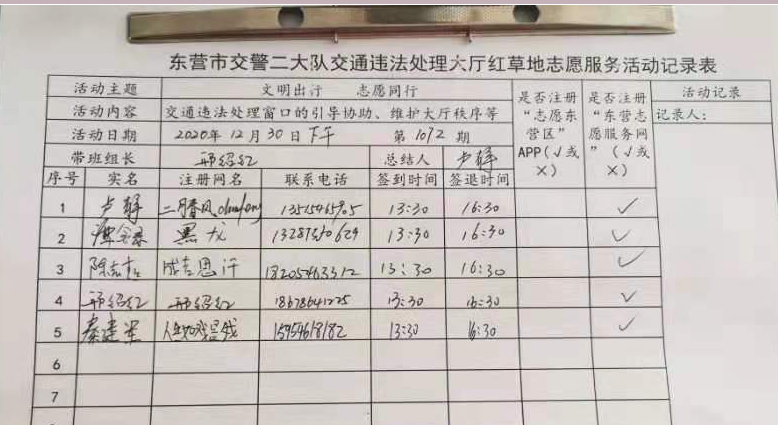 东营市交警二大队交通违法处理大厅红草地志愿服务活动记录表
活动主题 文明出行 志愿同行 是否注册“志愿东营区”APP(√或×) 是否注册“东营志愿服务网”(√或×) 活动记录
活动内容 交通违法处理窗口的引导协助、维护大厅秩序等 记录人：
活动日期 2020年12月30日下午 第1072期
带班组长 邢绍红 总结人 卢静
序号 实名 注册网名 联系电话 签到时间 签退时间
1 卢静 二月春风 13:30 16:30 √
2 黑龙 13:30 16:30 √
3 成吉思汗 18205463312 13:30 16:30 √
4 邢绍红 邢绍红 18678641225 13:30 16:30 √
5 秦建军 15954618182 13:30 16:30 √
6
7